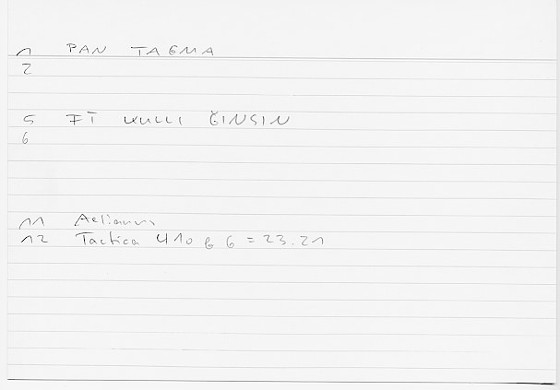 1 PAN TAGMA
2
5 FĪ KULLI ČINSIN
6
11 Aelianus
12 Tactica 410 b 6 = 23.21